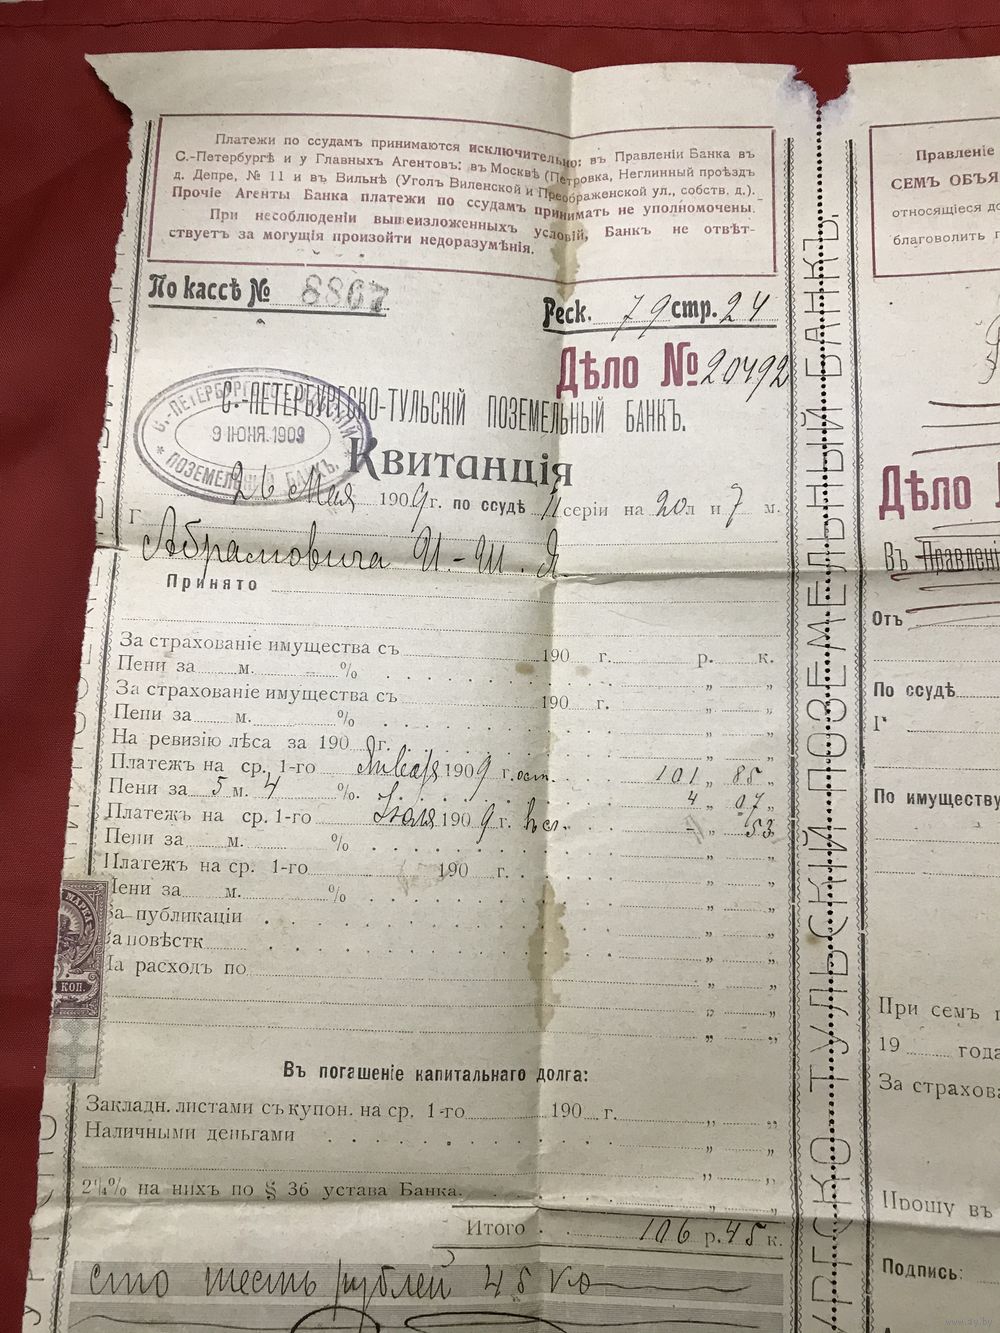 Платежи по ссудамъ принимаются исключительно: въ Правленіи Банка въ
С.-Петербургѣ и у Главныхъ Агентовъ: въ Москвѣ (Петровка, Неглинный проѣздъ
д. Депре, № 11 и въ Вильнѣ (Уголъ Виленской и Преображенской ул., собств. д.).
Прочіе Агенты Банка платежи по ссудамъ принимать не уполномочены.
При несоблюденіи вышеизложенныхъ условій, Банкъ не отвѣт-
ствуетъ за могущія произойти недоразумѣнія.
По кассѣ № 8867
Реск. 79 стр. 24
Дѣло № 20492
С.-ПЕТЕРБУРГСКО-ТУЛЬСКІЙ ПОЗЕМЕЛЬНЫЙ БАНКЪ.
9 ІЮНЯ. 1909
ПОЗЕМЕЛЬНЫЙ БАНКЪ.
Квитанція
26 Мая 1909 г. по ссудѣ 11 серіи на 20 л и 7 м.
Г Абрамовича И.-Ш. Я.
Принято
За страхованіе имущества съ 190 г. р. к.
Пени за м. %
За страхованіе имущества съ 190 г.
Пени за м. %
На ревизію лѣса за 190 г.
Платежъ на ср. 1-го Января 1909 г. ост. 101 „ 85 „
Пени за 5 м. 4 %. 4 „ 07 „
Платежъ на ср. 1-го Іюля 1909 г. - „ 53
Пени за м. %
Платежъ на ср. 1-го 190 г.
Пени за м. %
За публикаціи
За повѣстк
На расходъ по
Въ погашеніе капитальнаго долга:
Закладн. листами съ купон. на ср. 1-го 190 г.
Наличными деньгами
2¼% на нихъ по § 36 устава Банка.
Итого 106 р. 45 к.
сто шесть рублей 45 ко
МАРКА
КОП.
ТУЛЬСКІЙ ПОЗЕМЕЛЬНЫЙ БАНКЪ.
Правленіе
СЕМЪ ОБЪЯ
относящіеся до
благоволить
Дѣло
Въ Правлені
Отъ
По ссудѣ
Г
По имуществу
При семъ
19 года
За страхова
Прошу въ
Подпись:
www.ay.by